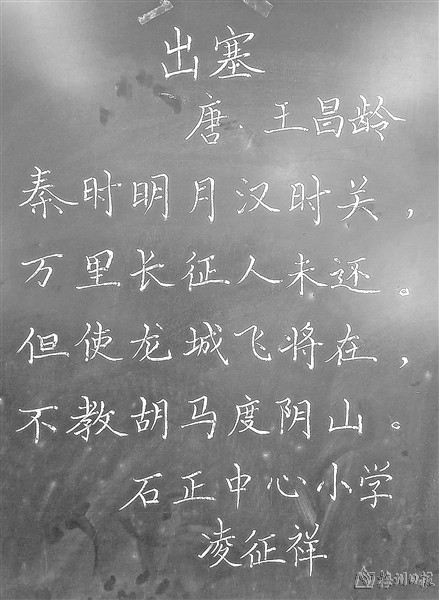 出塞
唐·王昌龄
秦时明月汉时关，
万里长征人未还。
但使龙城飞将在，
不教胡马度阴山。
石正中心小学
凌征祥
梅州日报